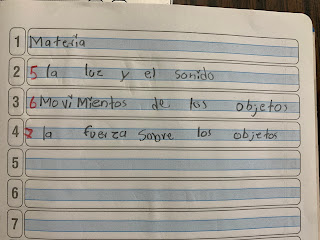 1 Materia
2 5 la luz y el sonido
3 6 MoviMientos de los objetos
4 7 la fuerza sobre los objetos
5
6
7